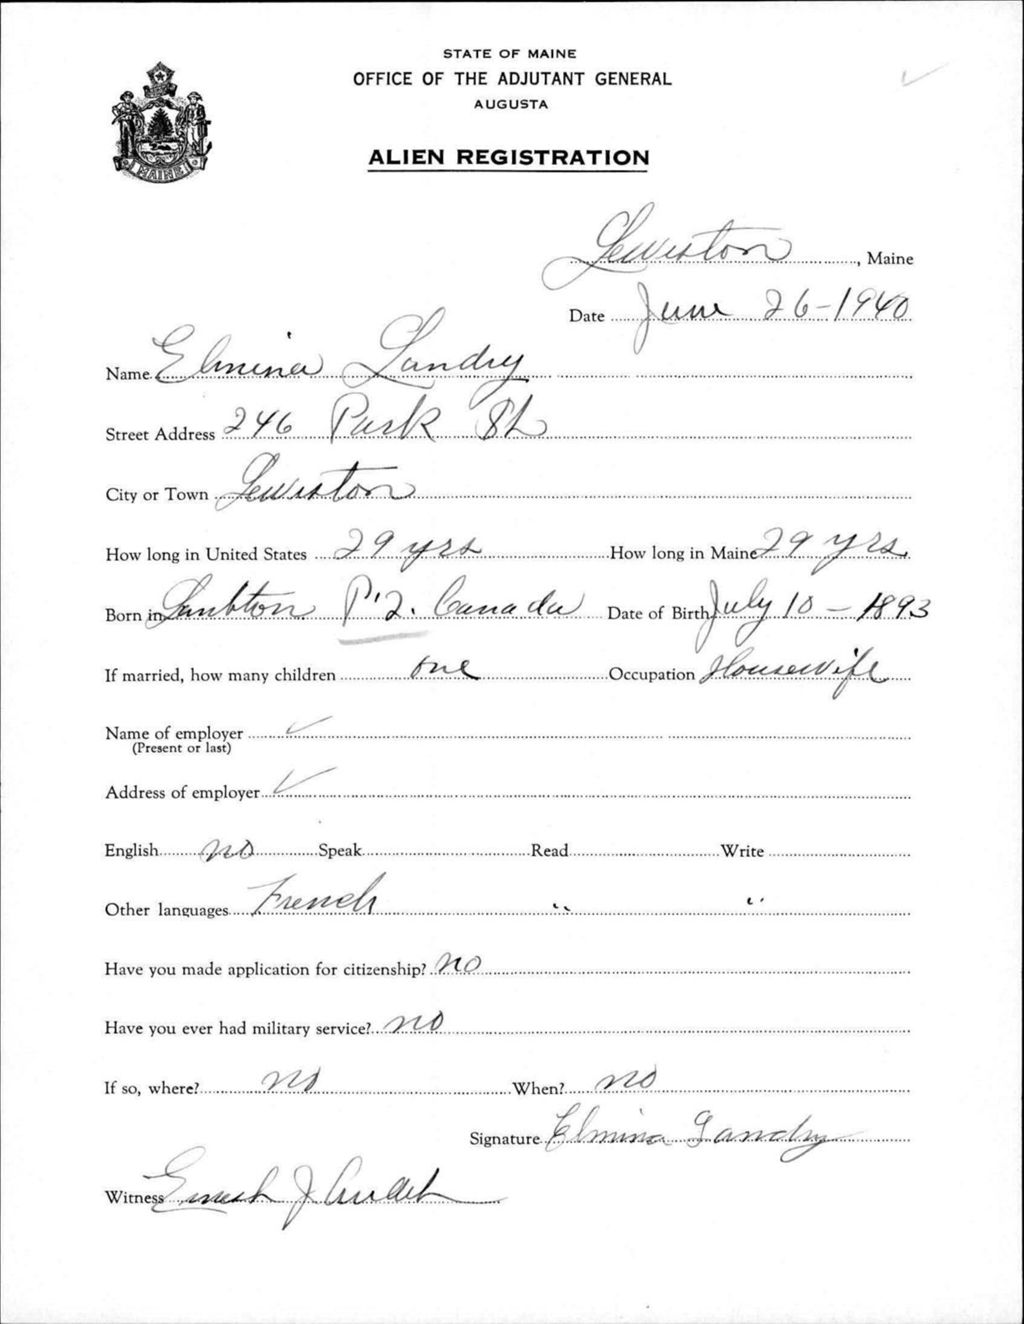 STATE OF MAINE
OFFICE OF THE ADJUTANT GENERAL
AUGUSTA
ALIEN REGISTRATION
MAINE
Lewiston, Maine
Date June 26-1940
Name Elmina Landry
Street Address 246 Park St
City or Town Lewiston
How long in United States 29 yrs How long in Maine 29 yrs
Born in Lambton P.Q. Canada Date of Birth July 10-1893
If married, how many children one Occupation Housewife
Name of employer
(Present or last)
Address of employer
English no Speak Read Write
Other languages French " "
Have you made application for citizenship? no
Have you ever had military service? no
If so, where? no When? no
Signature Elmina Landry
Witness Ernest J Audet